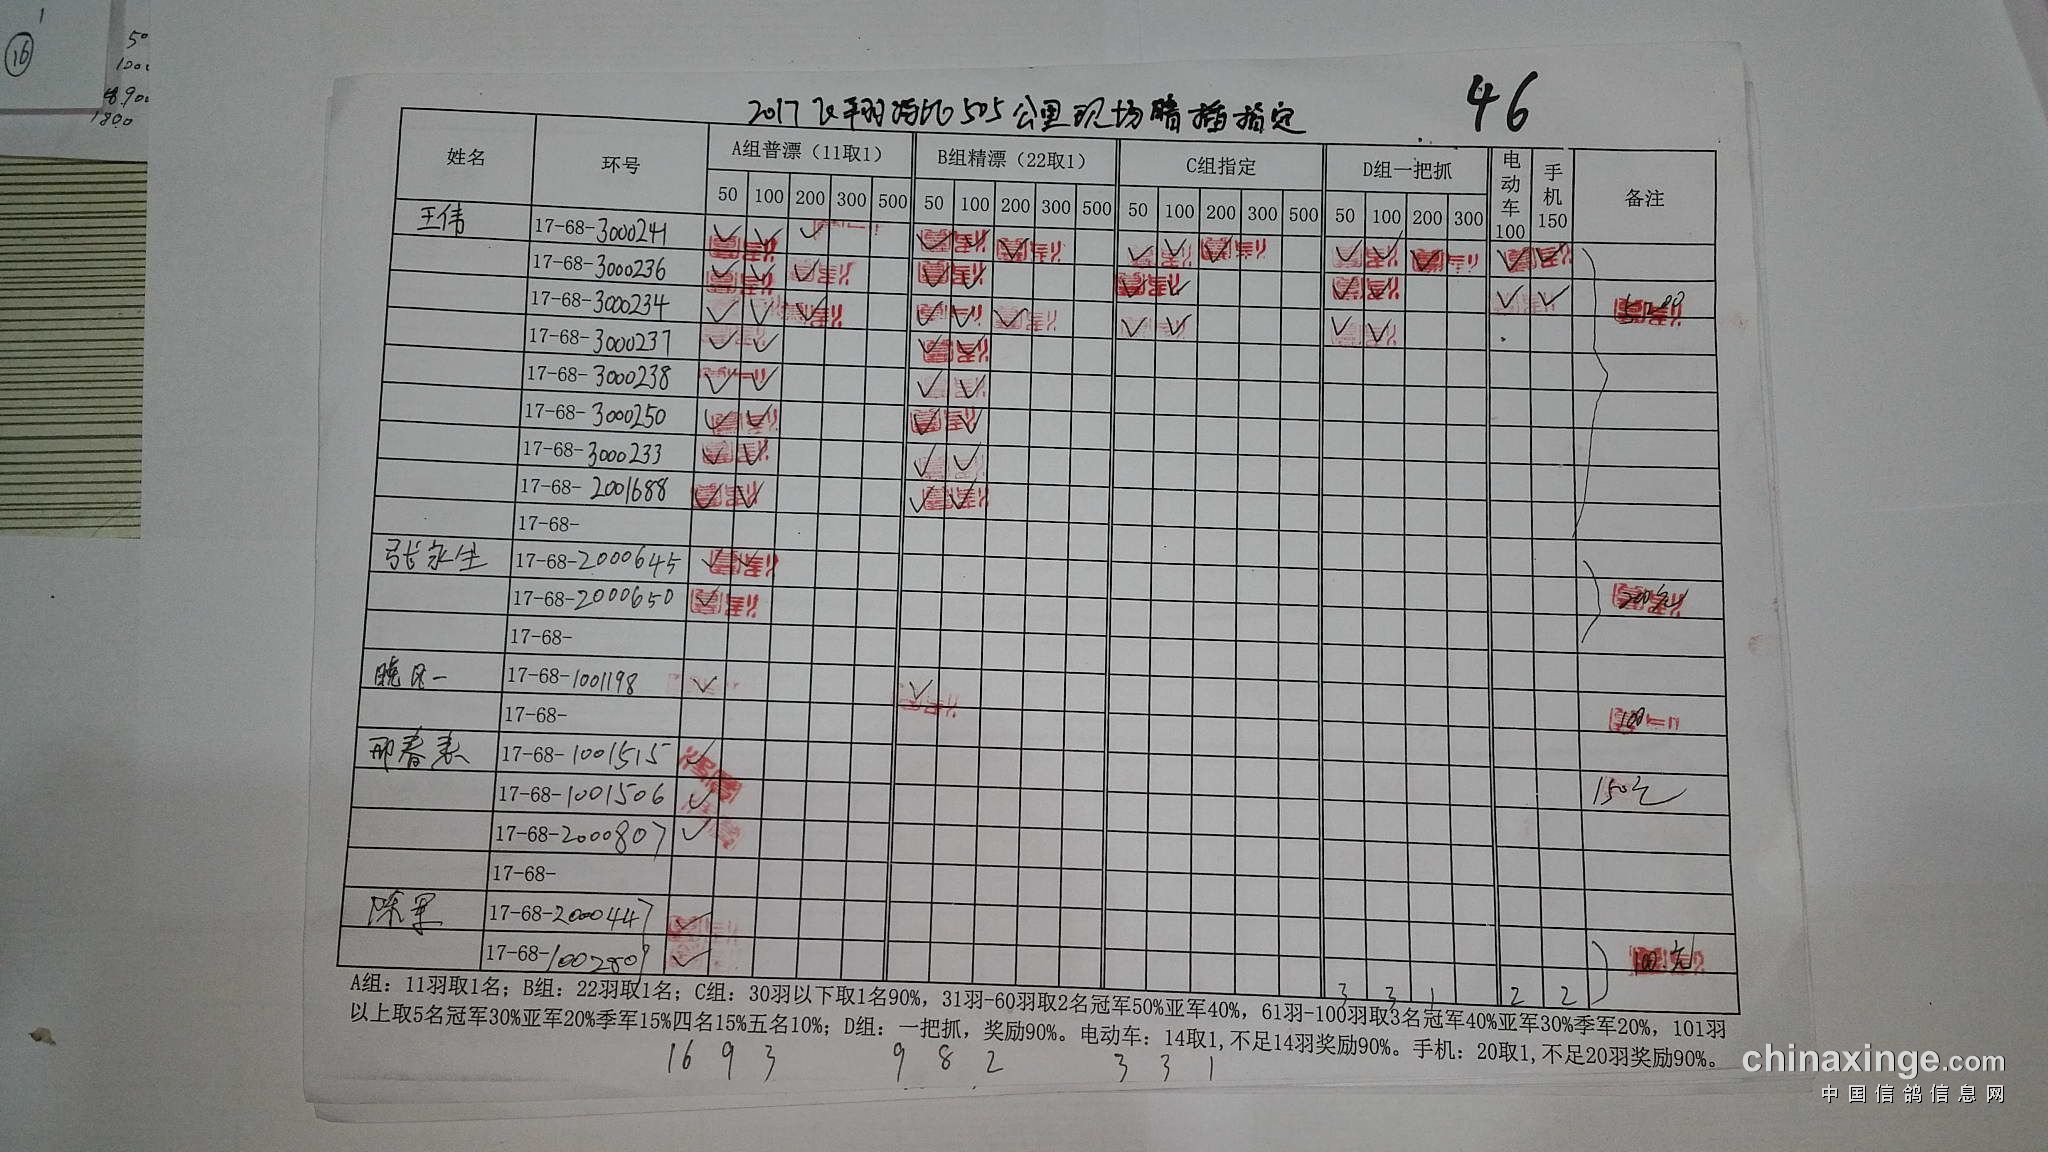 1
16
50
1800
2017飞翔 505公里现场暗插指定
46
姓名 环号 A组普漂（11取1） B组精漂（22取1） C组指定 D组一把抓 电动车100 手机150 备注
50 100 200 300 500 50 100 200 300 500 50 100 200 300 500 50 100 200 300
王伟 17-68-3000241 ✓ ✓ ✓ ✓ ✓ ✓ ✓ ✓ ✓ ✓ ✓ ✓ ✓ ✓
17-68-3000236 ✓ ✓ ✓ ✓ ✓ ✓ ✓ ✓ ✓ ✓ ✓
17-68-3000234 ✓ ✓ ✓ ✓ ✓ ✓ ✓ ✓ ✓ ✓
17-68-3000237 ✓ ✓ ✓ ✓
17-68-3000238 ✓ ✓ ✓ ✓
17-68-3000250 ✓ ✓ ✓ ✓
17-68-3000233 ✓ ✓ ✓ ✓
17-68-2001688 ✓ ✓ ✓ ✓
17-68-
张永生 17-68-2000645 ✓ ✓
17-68-2000650 ✓ 200元
17-68-
17-68-1001198 ✓ ✓
17-68- 100
邢春 17-68-1001515 ✓
17-68-1001506 ✓ 150元
17-68-2000807 ✓
17-68-
陈军 17-68-2000447 ✓
17-68-1002809 ✓ 100元
3 3 1 2 2
A组：11羽取1名；B组：22羽取1名；C组：30羽以下取1名90%，31羽-60羽取2名冠军50%亚军40%，61羽-100羽取3名冠军40%亚军30%季军20%，101羽
以上取5名冠军30%亚军20%季军15%四名15%五名10%；D组：一把抓，奖励90%。电动车：14取1,不足14羽奖励90%。手机：20取1,不足20羽奖励90%。
16 9 3 9 8 2 3 3 1
chinaxinge.com
中国信鸽信息网